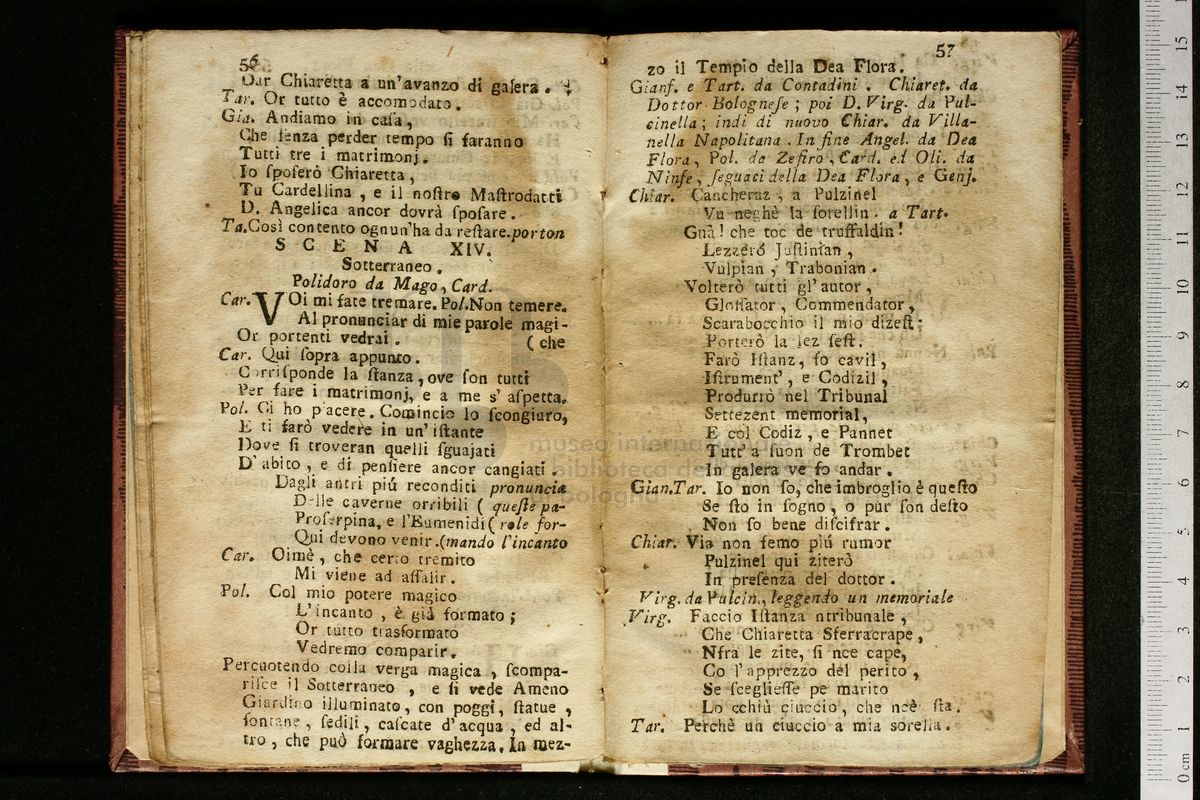 56
Dar Chiaretta a un'avanzo di galera.
Tar. Or tutto è accomodato.
Gia. Andiamo in caſa,
Che ſenza perder tempo ſi faranno
Tutti tre i matrimonj.
Io ſpoſerò Chiaretta,
Tu Cardellina, e il noſtro Maſtrodatti
D. Angelica ancor dovrà ſpoſare.
Ta. Così contento ognun'ha da reſtare. porton
SCENA XIV.
Sotterraneo.
Polidoro da Mago, Card.
Car. VOi mi fate tremare. Pol. Non temere.
Al pronunciar di mie parole magi-
Or portenti vedrai. (che
Car. Qui ſopra appunto.
Corriſponde la ſtanza, ove ſon tutti
Per fare i matrimonj, e a me s' aſpetta.
Pol. Ci ho piacere. Comincio lo ſcongiuro,
E ti farò vedere in un' iſtante
Dove ſi troveran quelli ſguajati
D' abito, e di penſiere ancor cangiati.
Dagli antri piú reconditi pronuncia
Delle caverne orribili ( queſte pa-
Proſerpina, e l'Eumenidi ( role for-
Qui devono venir. (mando l'incanto
Car. Oimè, che certo tremito
Mi viene ad aſſalir.
Pol. Col mio potere magico
L'incanto, è giá formato;
Or tutto trasformato
Vedremo comparir.
Percuotendo colla verga magica, ſcompa-
riſce il Sotterraneo, e ſi vede Ameno
Giardino illuminato, con poggi, ſtatue,
fontane, ſedili, caſcate d'acqua, ed al-
tro, che può formare vaghezza. In mez-
57
zo il Tempio della Dea Flora.
Gianf. e Tart. da Contadini. Chiaret. da
Dottor Bologneſe; poi D. Virg. da Pul-
cinella; indi di nuovo Chiar. da Villa-
nella Napolitana. In fine Angel. da Dea
Flora, Pol. da Zefiro, Card. ed Oli. da
Ninfe, ſeguaci della Dea Flora, e Genj.
Chiar. Cancheraz, a Pulzinel
Vu neghè la ſorellin. a Tart.
Guà! che toc de truffaldin!
Lezzeró Juſtinian,
Vulpian, Trabonian.
Volterò tutti gl'autor,
Gloſſator, Commendator,
Scarabocchio il mio dizeſt;
Porterò la lez feſt.
Farò Iſtanz, fo cavil,
Iſtrument', e Codizil,
Produrrò nel Tribunal
Settezent memorial,
E col Codiz, e Pannet
Tutt' a ſuon de Trombet
In galera ve fo andar.
Gian. Tar. Io non ſo, che imbroglio è queſto
Se ſto in ſogno, o pur ſon deſto
Non ſo bene diſcifrar.
Chiar. Via non femo piú rumor
Pulzinel qui ziterò
In preſenza del dottor.
Virg. da Pulcin., leggendo un memoriale
Virg. Faccio Iſtanza ntribunale,
Che Chiaretta Sferracrape,
Nfra le zite, ſi nce cape,
Co l'apprezzo del perito,
Se ſceglieſſe pe marito
Lo cchiù ciuccio, che ncè ſta.
Tar. Perchè un ciuccio a mia sorella.